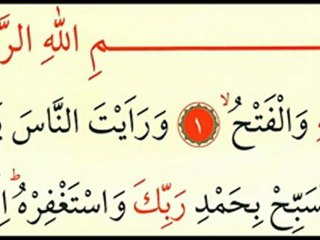 مِ اللهِ الرَّ
وَالْفَتْحُۙ ١ وَرَاَيْتَ النَّاسَ
سَبِّحْ بِحَمْدِ رَبِّكَ وَاسْتَغْفِرْهُؕ